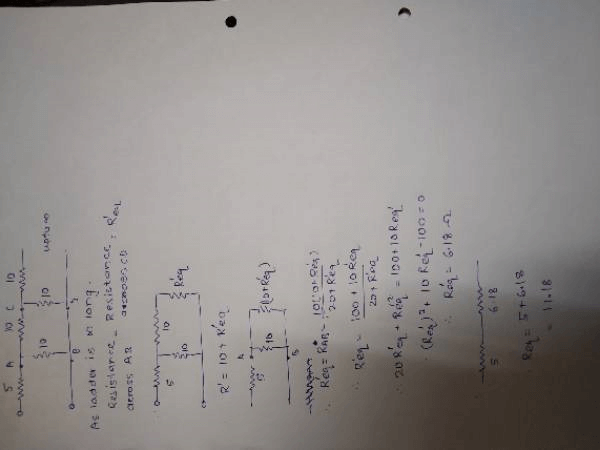 5 A 10 C 10
10 10 upto ∞
B
As ladder is ∞ long.
Resistance = Resistance = R'eq
across AB across CD
5 10
10 R'eq
R' = 10 + R'eq
A
5 10 (10+R'eq)
B
∴ Req = RAB = 10(10+R'eq) / 20+R'eq
∴ R'eq = 100 + 10Req / 20 + R'eq
∴ 20R'eq + R'eq² = 100 + 10Req'
(Req')² + 10 Req' - 100 = 0
∴ R'eq = 6.18 Ω
5 6.18
Req = 5 + 6.18
= 11.18